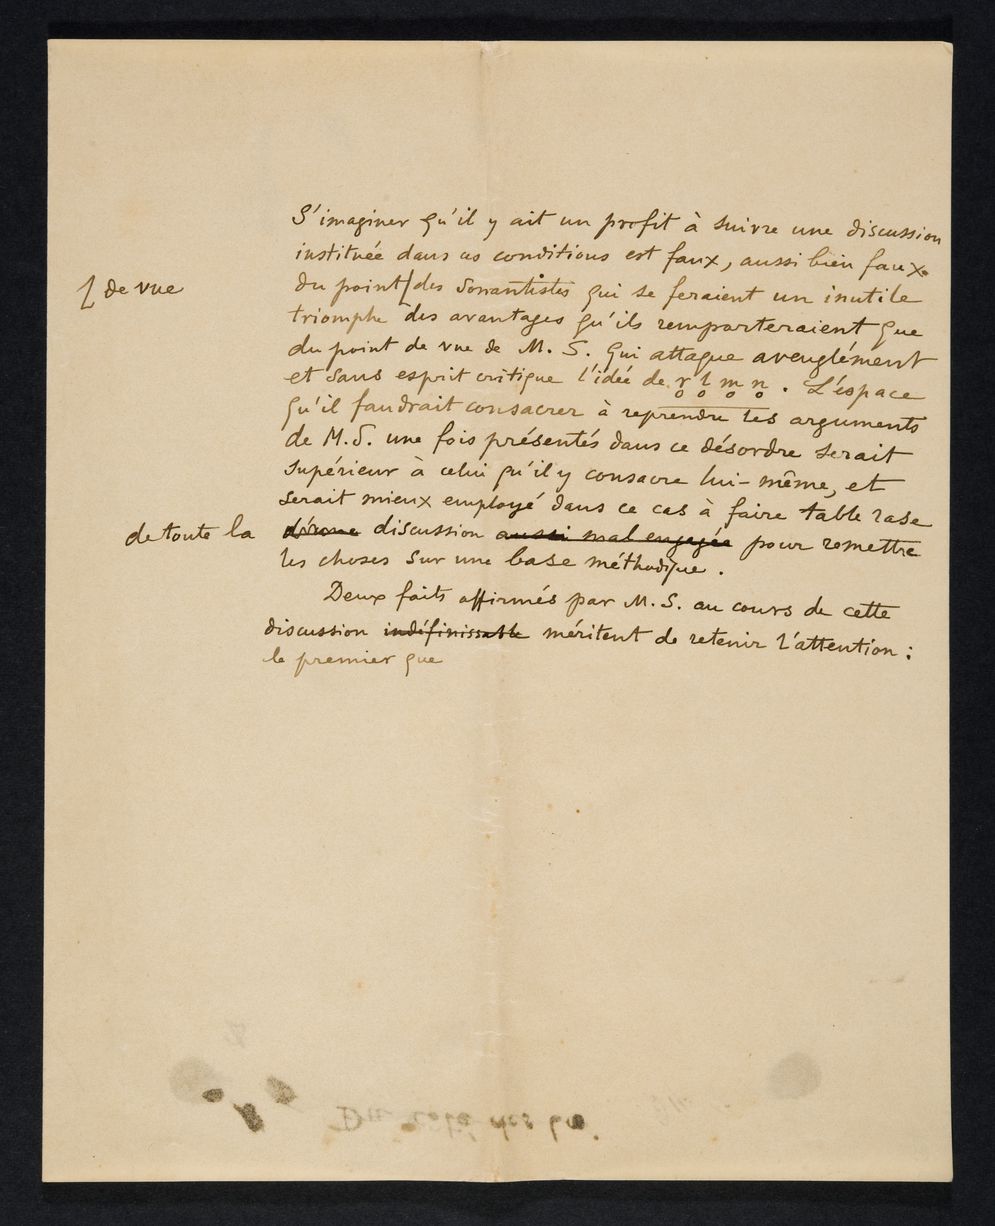 S'imaginer qu'il y ait un profit à suivre une discussion
instituée dans ces conditions est faux, aussi bien faux
de vue
du point des sonantistes qui se feraient un inutile
triomphe des avantages qu'ils remporteraient que
du point de vue de M. S. qui attaque aveuglément
et sans esprit critique l'idée de r̥ l̥ m̥ n̥. L'espace
qu'il faudrait consacrer à reprendre les arguments
de M. S. une fois présentés dans ce désordre serait
supérieur à celui qu'il y consacre lui-même, et
serait mieux employé dans ce cas à faire table rase
de toute la d'une discussion aussi mal engagée pour remettre
les choses sur une base méthodique.
Deux faits affirmés par M. S. au cours de cette
discussion indéfinissable méritent de retenir l'attention :
le premier que